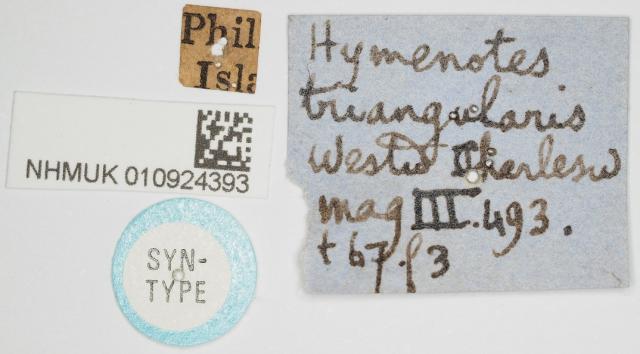 Phil
Isla
NHMUK 010924393
SYN-
TYPE
Hymenotes
triangularis
Westw Charlesw
mag III. 493.
t 67. f 3